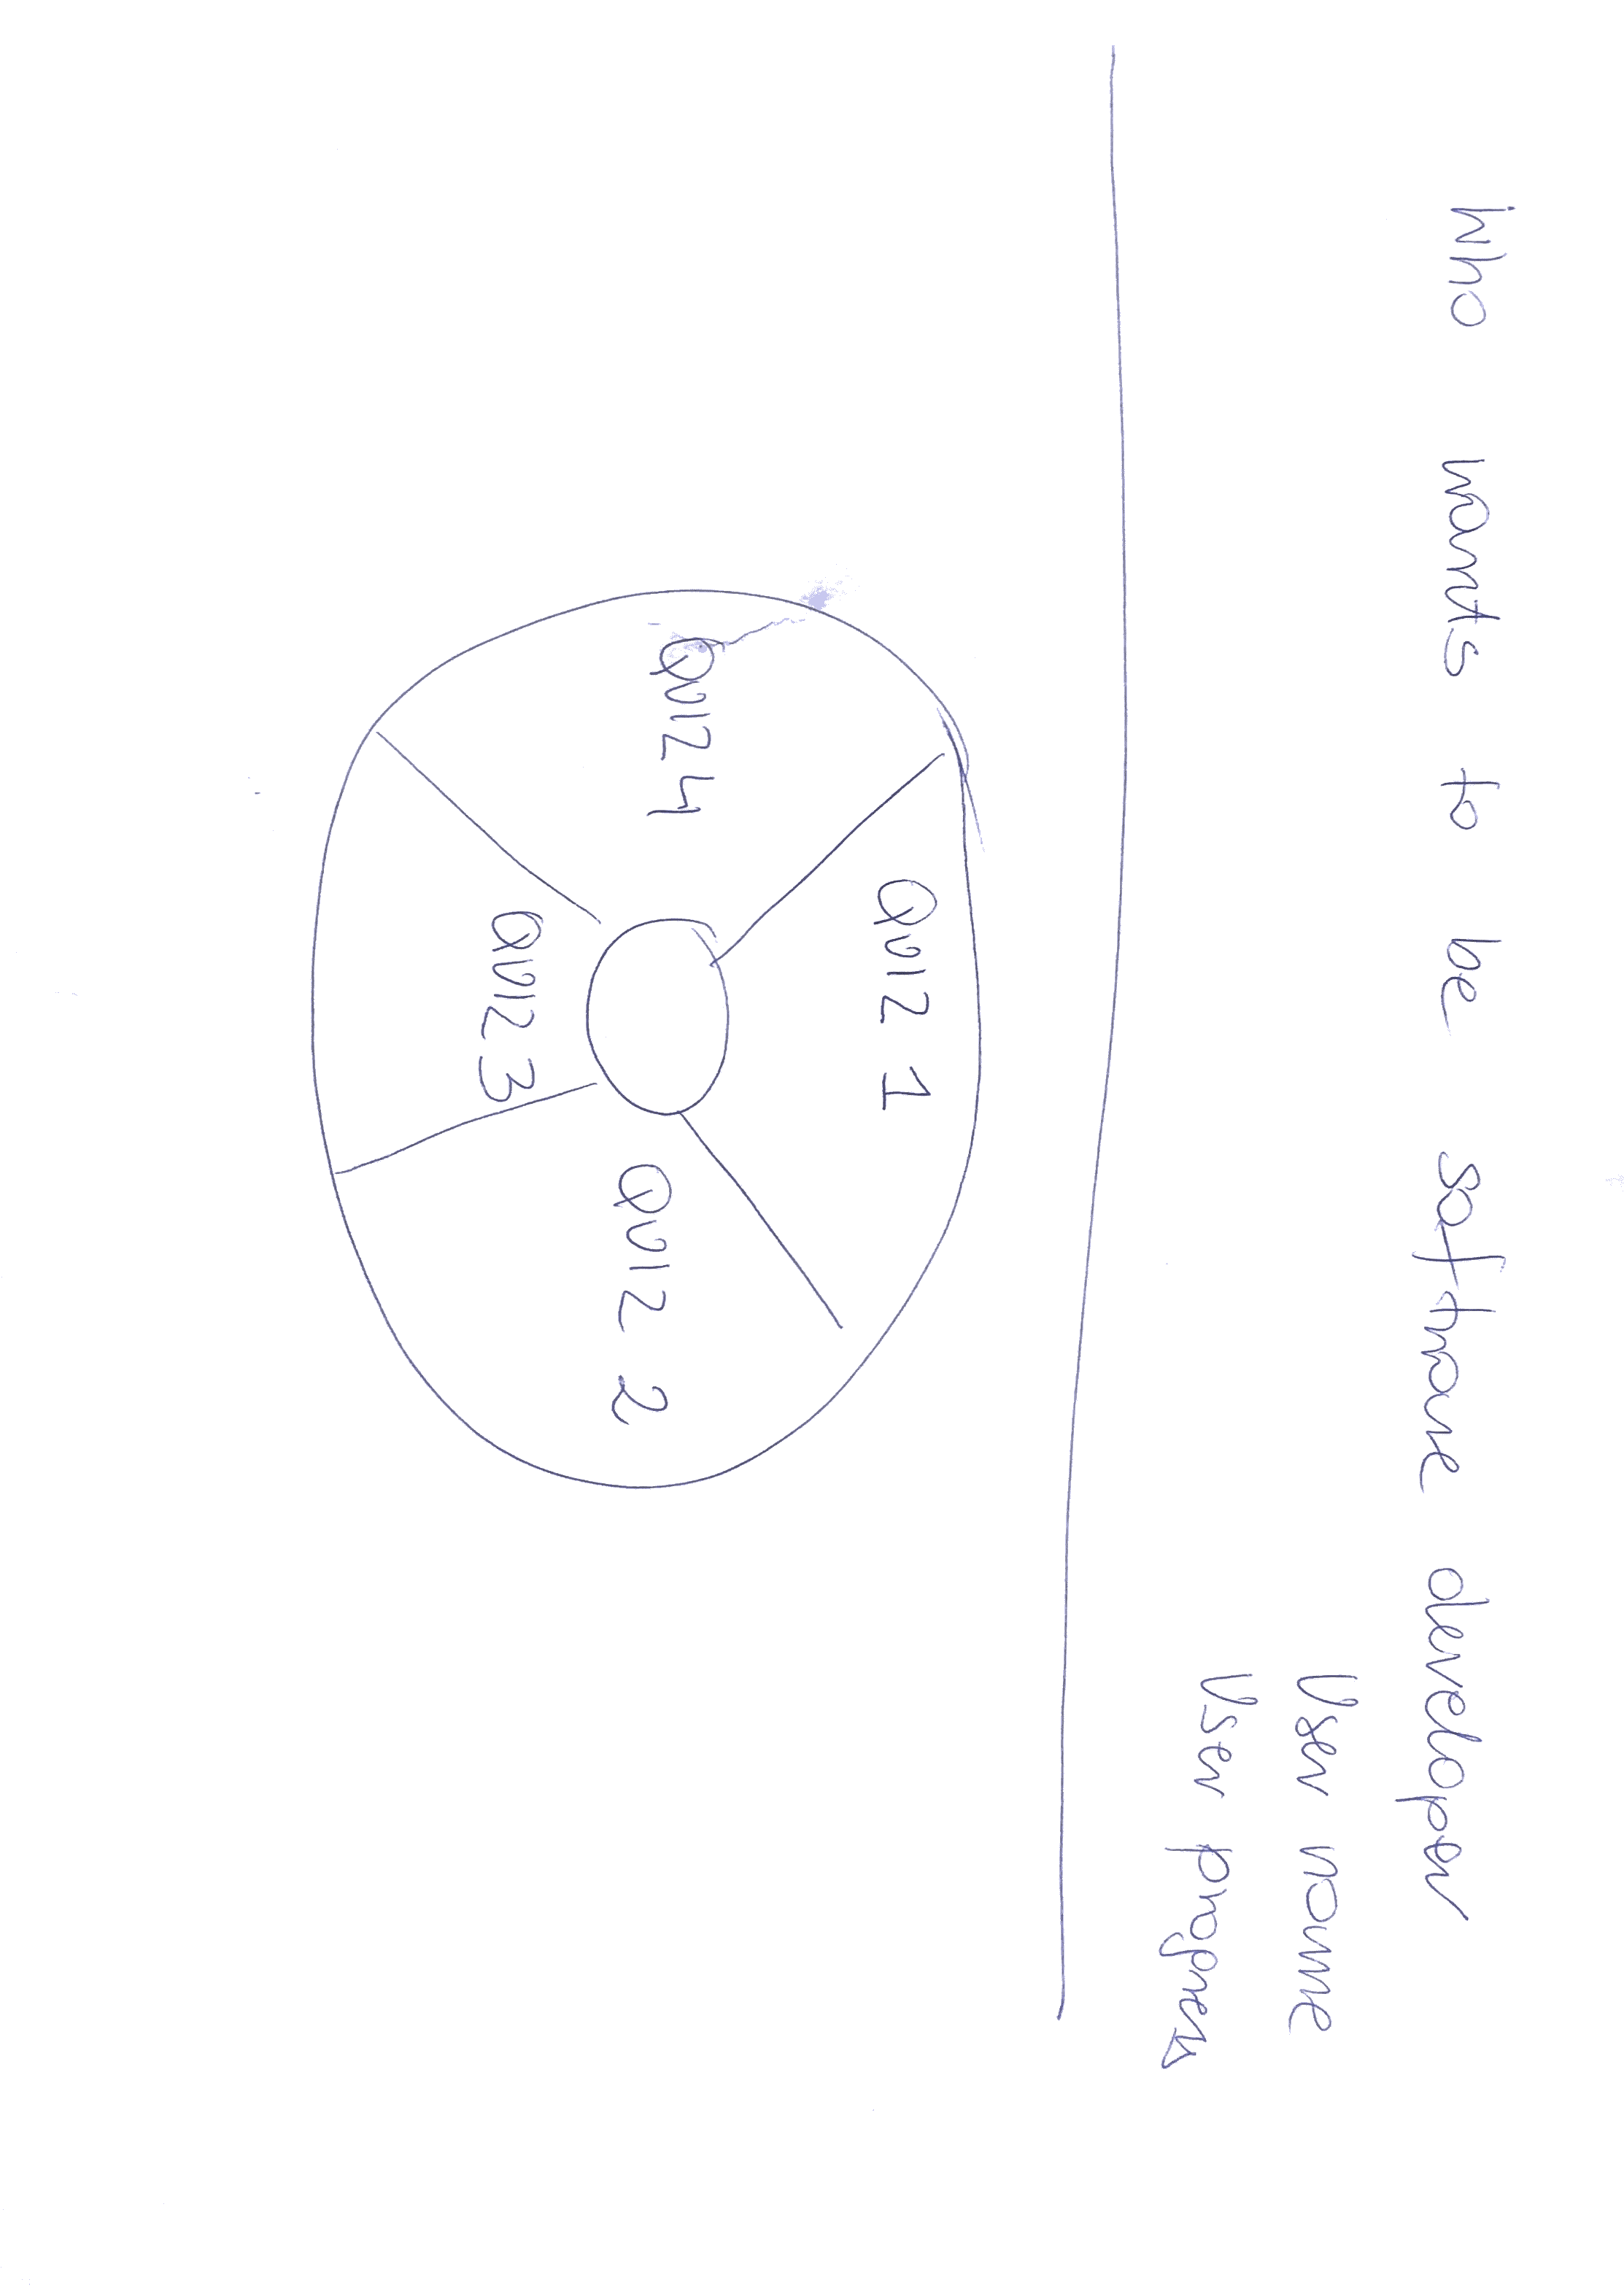 Who wants to be software developer
User name
User progress
QUIZ 1
QUIZ 4
QUIZ 2
QUIZ 3